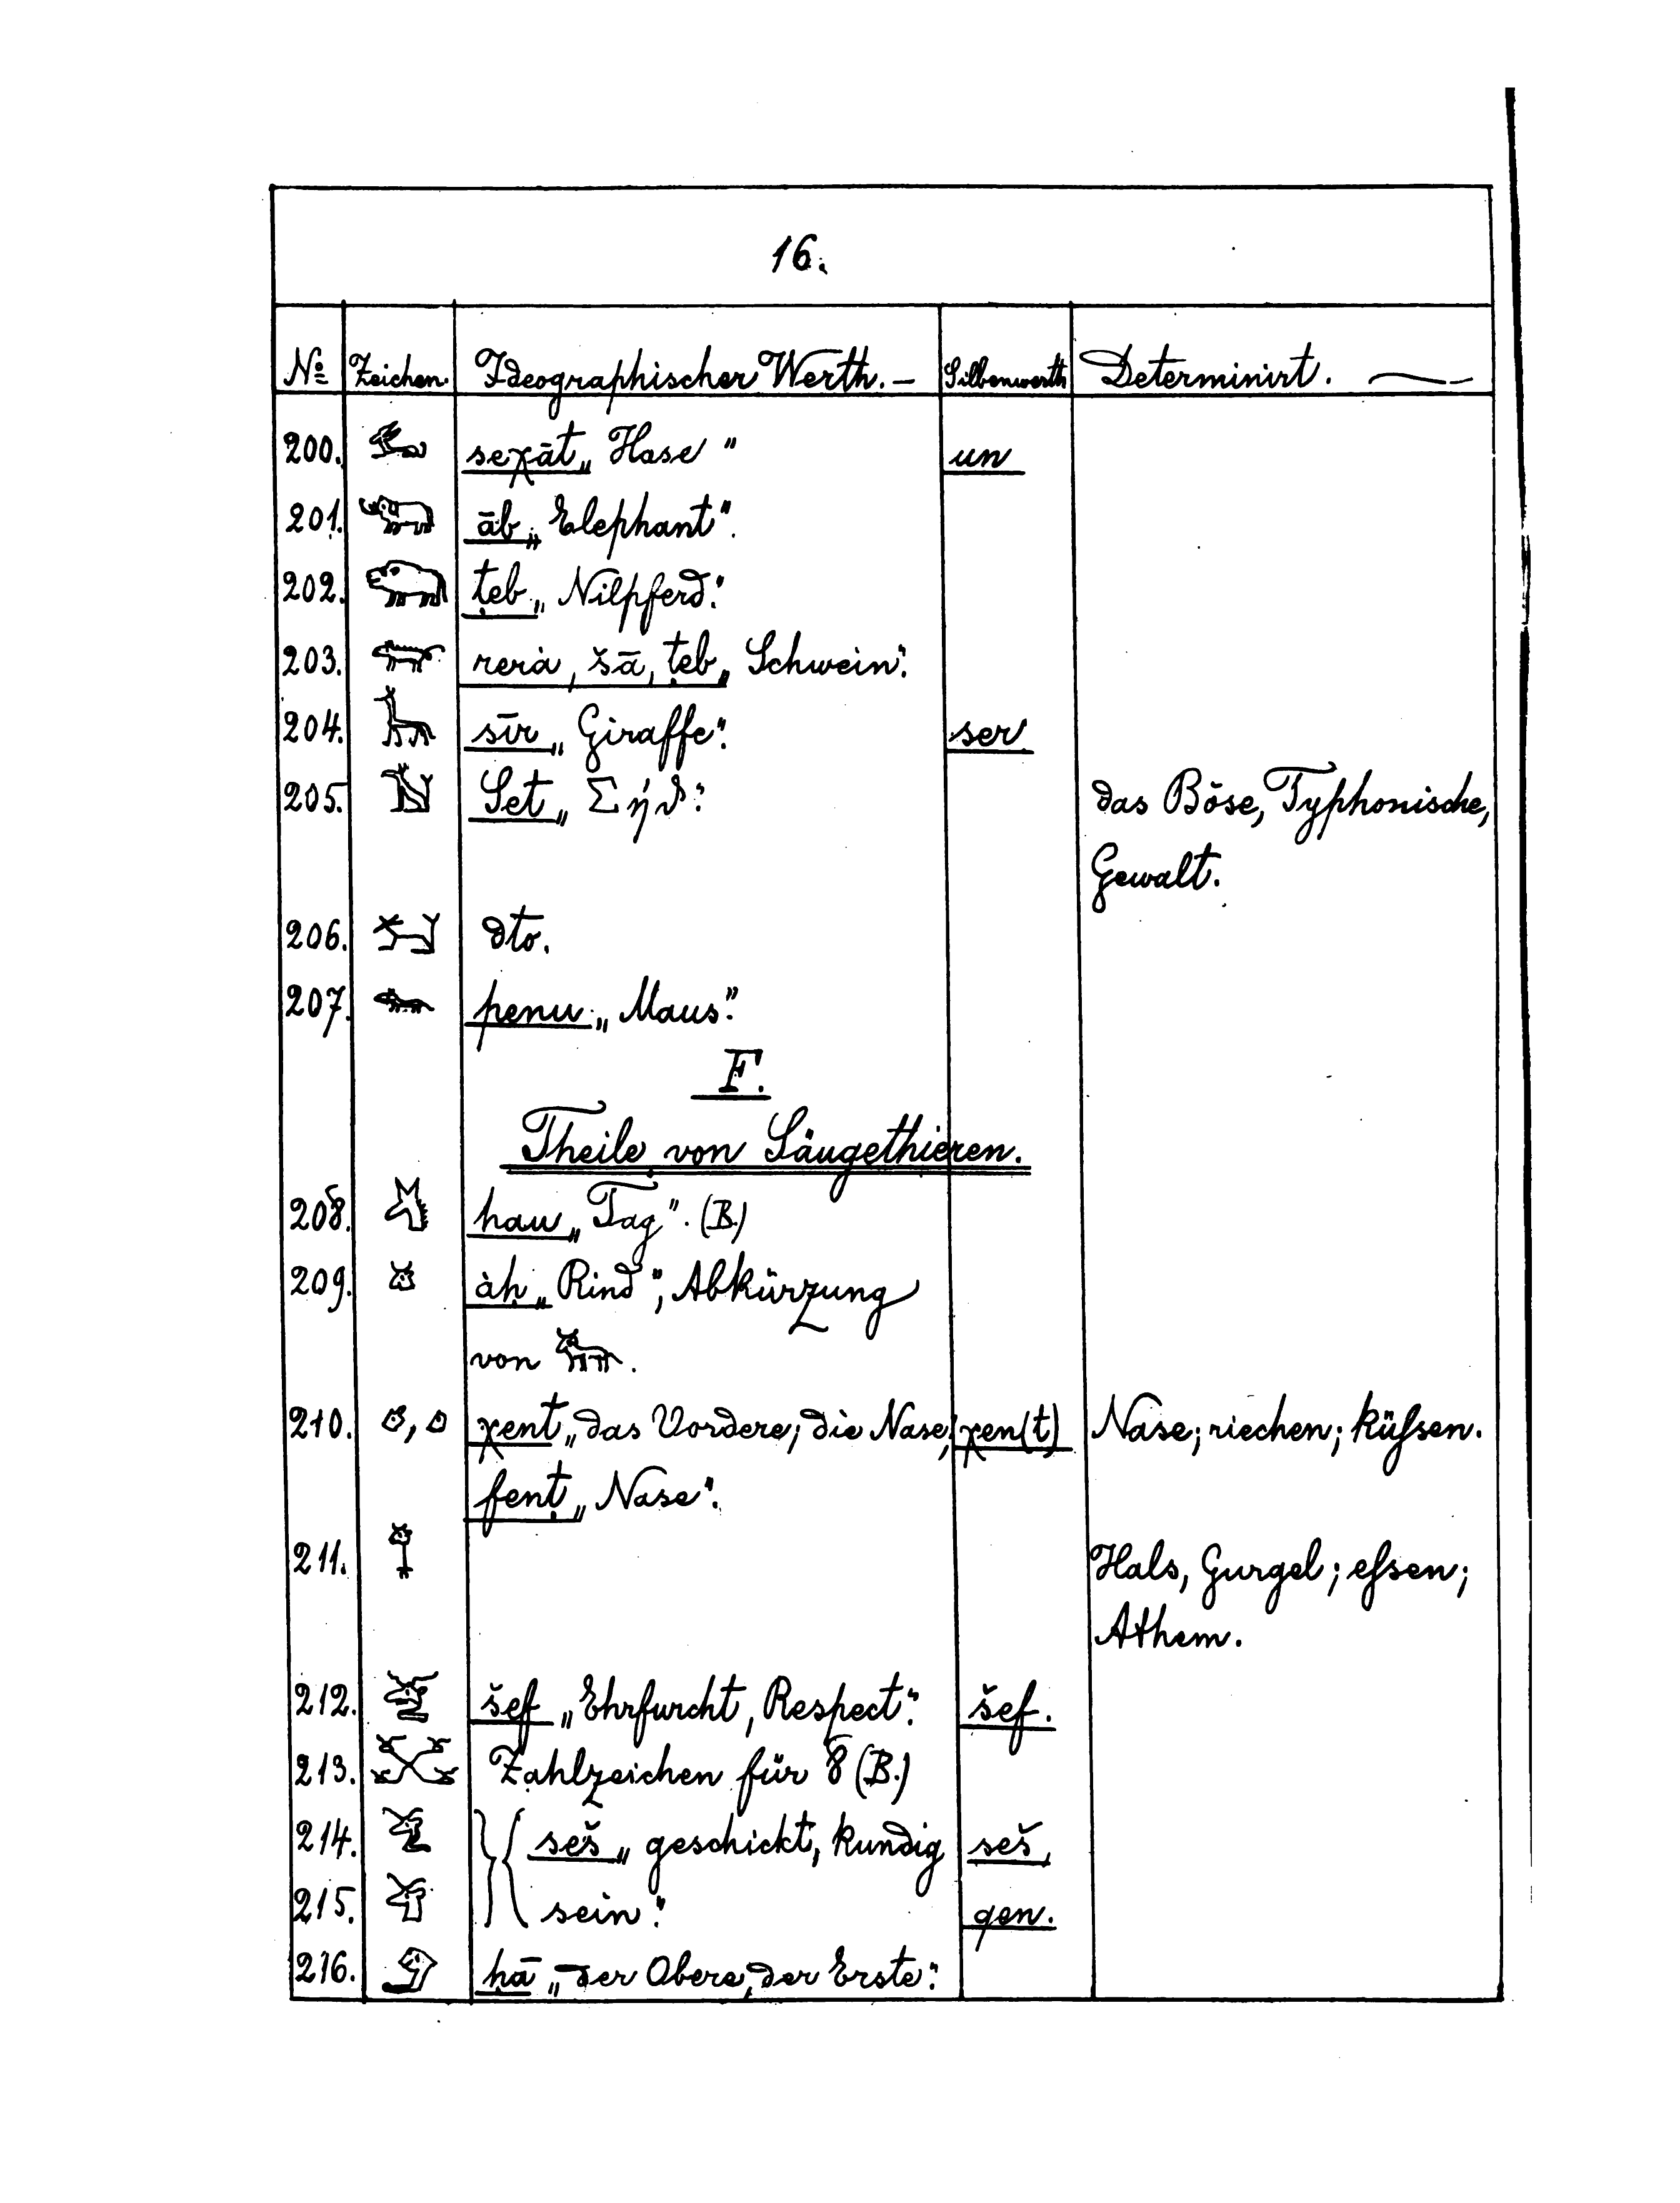 16.
No Zeichen. Ideographischer Werth. – Silbenwerth Determinirt. —
200. seχāt „Hase" un
201. āb „Elephant".
202. ṭeb „Nilpferd".
203. rerà, šā, ṭeb „Schwein".
204. sīr „Giraffe". ser
205. Set „Σήϑ". das Böse, Typhonische,
Gewalt.
206. dto.
207. penu „Maus".
F.
Theile von Säugethieren.
208. hau „Tag". (B.)
209. àḥ „Rind", Abkürzung
von .
210. , χent „das Vordere; die Nase; χen(t) Nase; riechen; küſsen.
fenṭ „Nase".
211. Hals, Gurgel; eſsen;
Athem.
212. šef „Ehrfurcht, Respect". šef.
213. Zahlzeichen für 8 (B.)
214. seš „geschickt, kundig seš,
215. sein". qen.
216. ḥā „der Obere, der Erste".